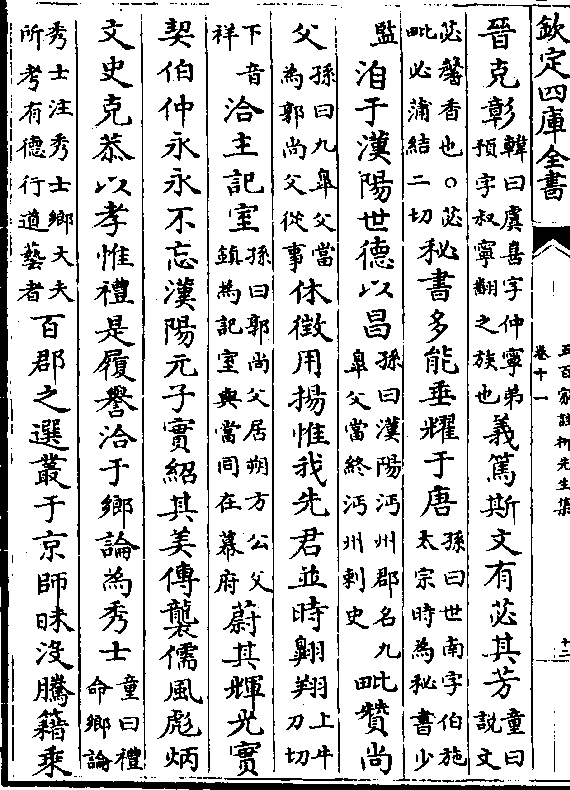 欽定四庫全書
五百家註柳先生集
卷十一
十二
晉克彰韓曰虞喜字仲寧弟預字叔寧翻之族也義篤斯文有苾其芳童曰説文
苾馨香也○苾毗必蒲結二切秘書多能垂耀于唐孫曰世南字伯施太宗時為秘書少
監洎于漢陽世德以昌孫曰漢陽沔州郡名九皐父當終沔州刺史毗贊尚
父孫曰九皐父當為郭尚父從事休徴用揚惟我先君並時翺翔上牛刀切
下音祥洽主記室孫曰郭尚父居朔方公父鎮為記室與當間在幕府蔚其輝光實
契伯仲永永不忘漢陽元子實紹其美傳襲儒風彪炳
文史克恭以孝惟禮是履譽洽于鄉論為秀士童曰禮命鄉論
秀士注秀士鄉大夫所考有德行道藝者百郡之選叢于京師昧没騰籍乗